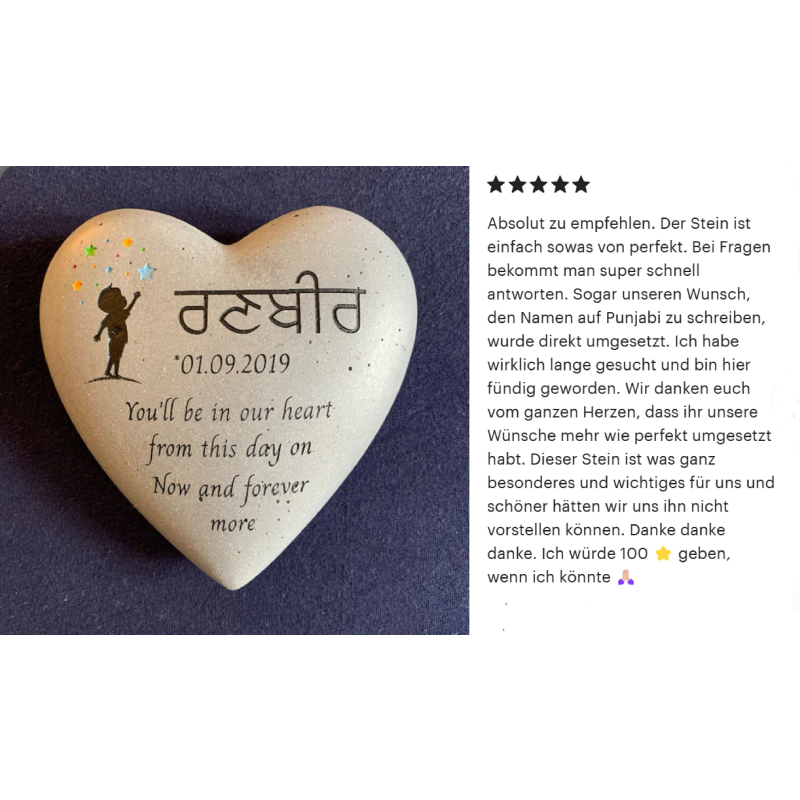 ਰਣਬੀਰ
*01.09.2019
You'll be in our heart
from this day on
Now and forever
more
★★★★★
Absolut zu empfehlen. Der Stein ist
einfach sowas von perfekt. Bei Fragen
bekommt man super schnell
antworten. Sogar unseren Wunsch,
den Namen auf Punjabi zu schreiben,
wurde direkt umgesetzt. Ich habe
wirklich lange gesucht und bin hier
fündig geworden. Wir danken euch
vom ganzen Herzen, dass ihr unsere
Wünsche mehr wie perfekt umgesetzt
habt. Dieser Stein ist was ganz
besonderes und wichtiges für uns und
schöner hätten wir uns ihn nicht
vorstellen können. Danke danke
danke. Ich würde 100 ⭐ geben,
wenn ich könnte 🙏🏼